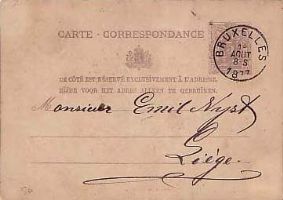 CARTE-CORRESPONDANCE
BRUXELLES
1
AOUT
8-S
1877
CE CÔTÉ EST RÉSERVÉ EXCLUSIVEMENT À L'ADRESSE.
ZIJDE VOOR HET ADRES ALLEEN TE GEBRUIKEN.
Monsieur Emil Nyst,
Liége.